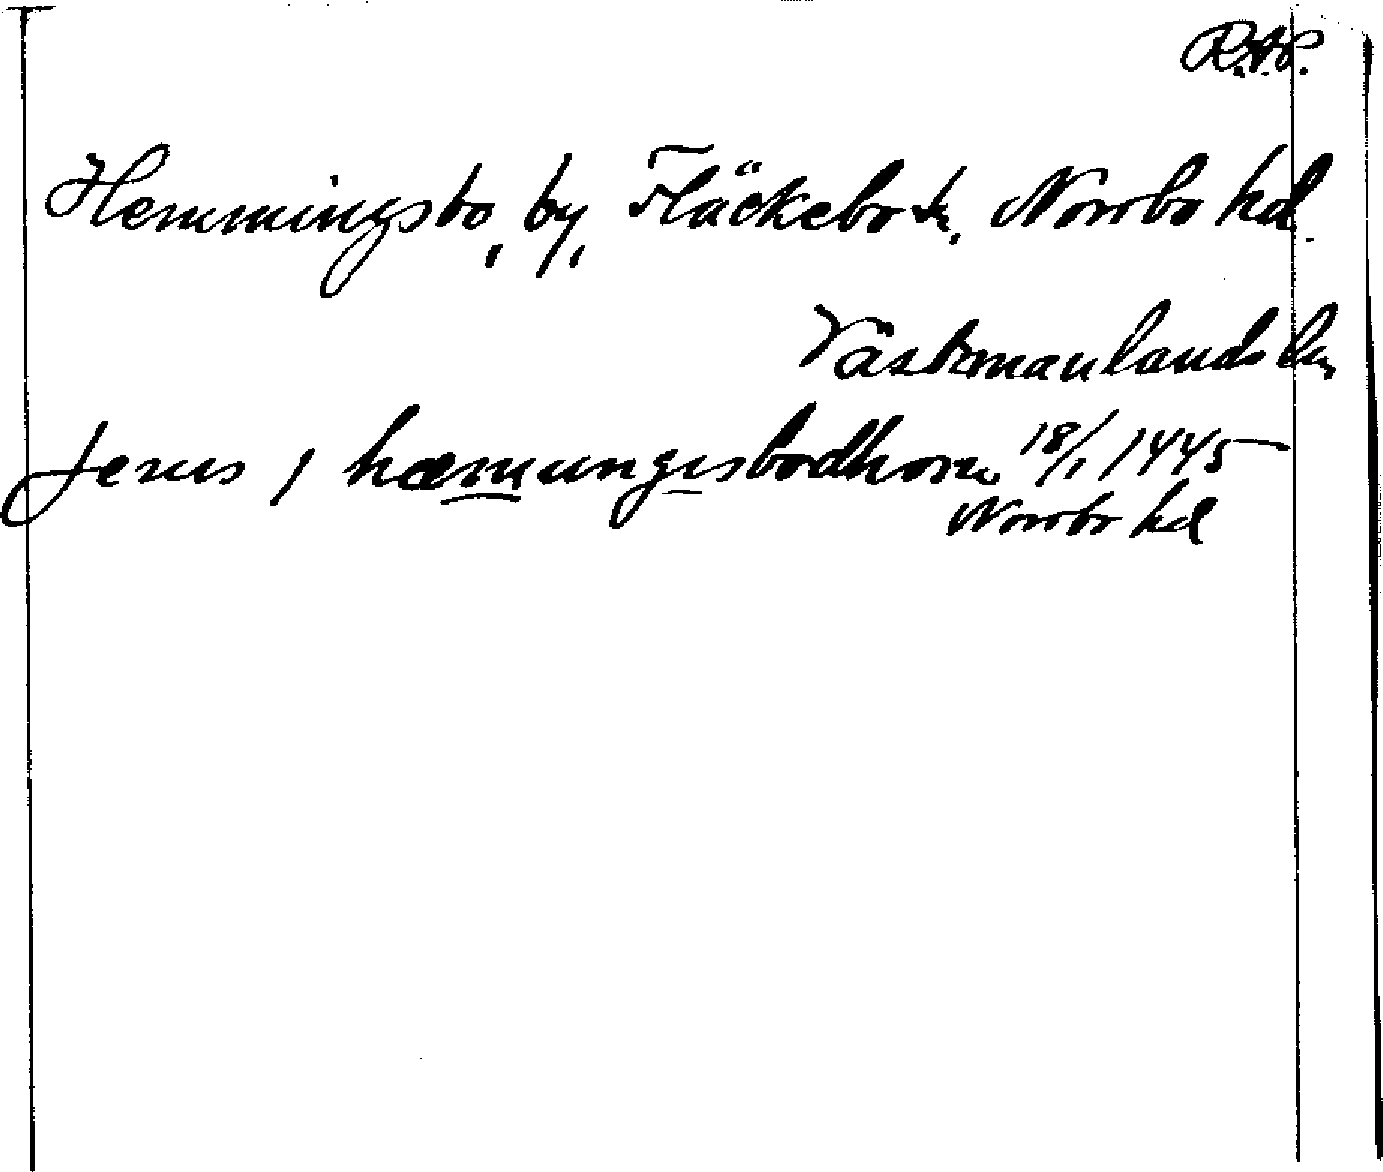 R.A.P.
Hemmingsbo, by, Fläckebo sn, Norrbo hd.
Västmanlands län
Jenus j hæmungisbodhom 18/1 1445
Norrbo hd